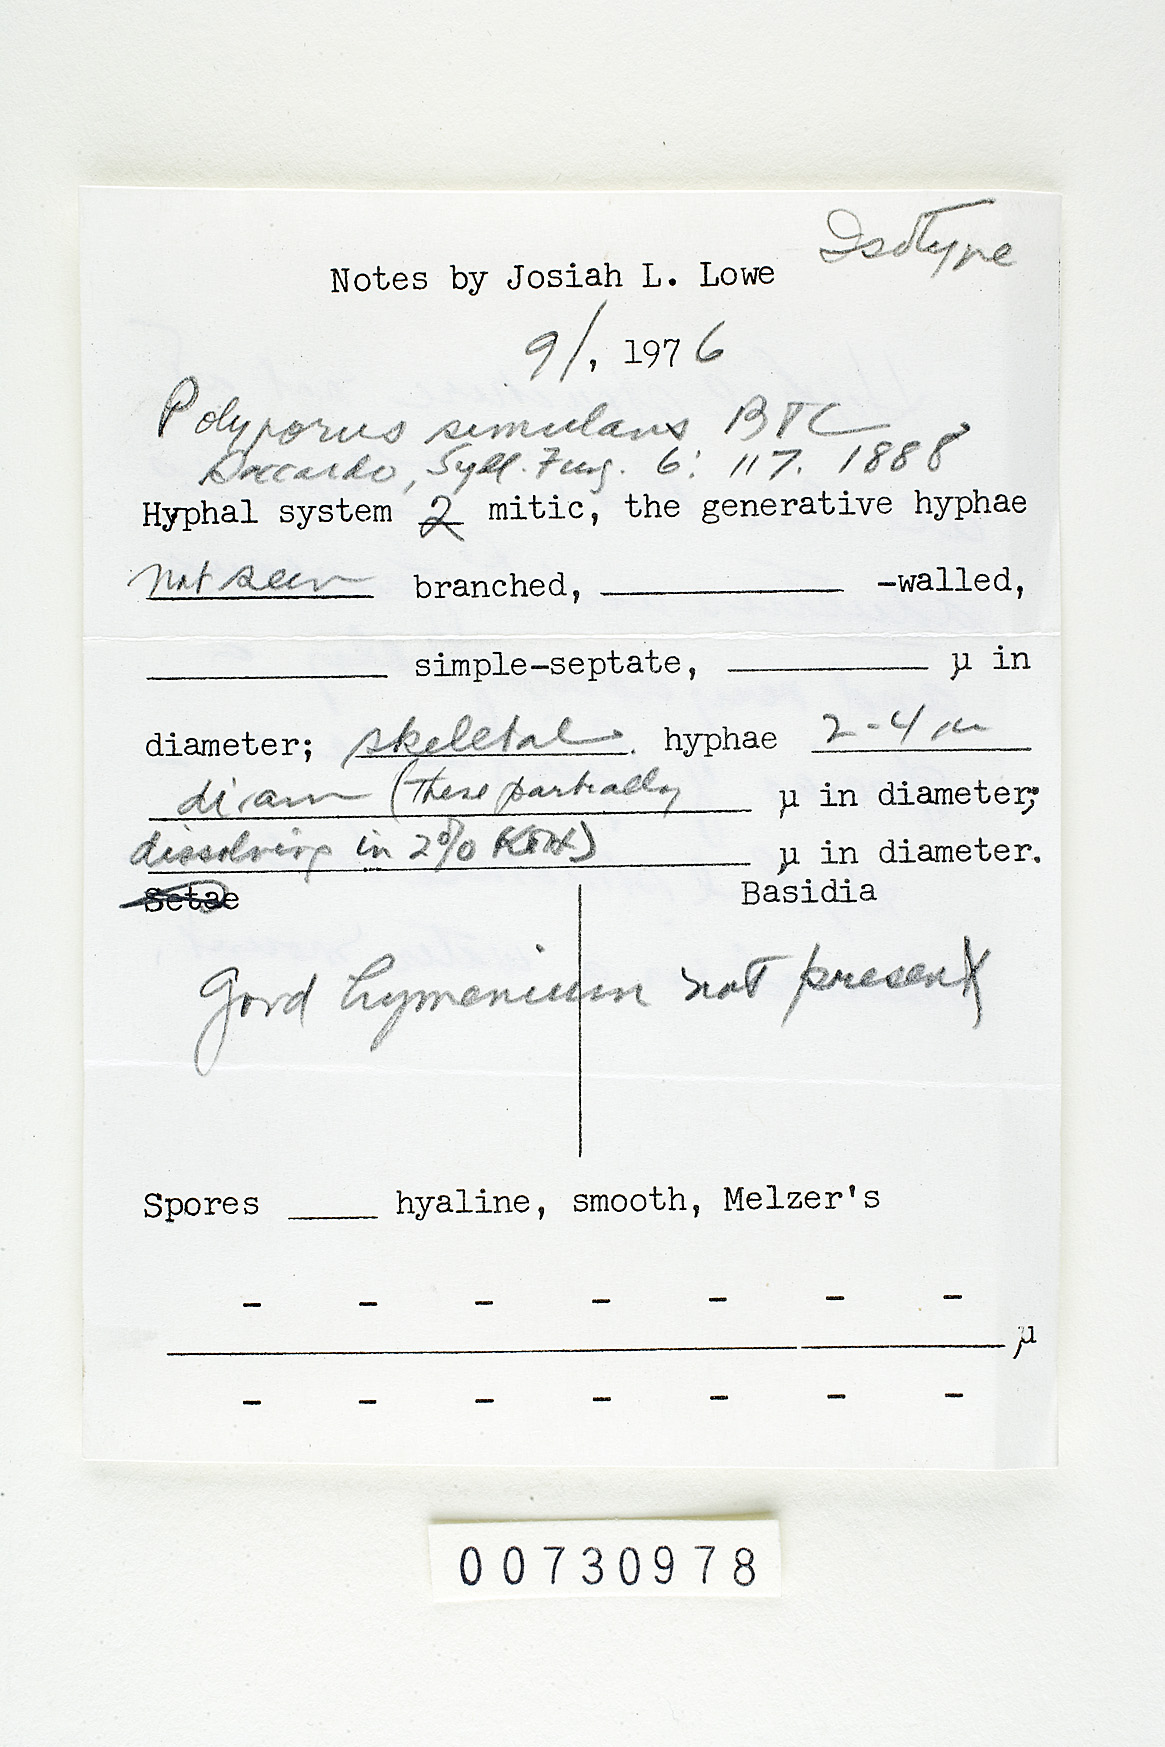 Isotype
Notes by Josiah L. Lowe
9/, 1976
Polyporus simulans BTC
Saccardo, Syll. Fung. 6: 117. 1888
Hyphal system 2 mitic, the generative hyphae
not seen branched, ________ -walled,
________ simple-septate, ________ µ in
diameter; skeletal hyphae 2-4 µ
diam (these partially µ in diameter;
dissolving in 2% KOH) µ in diameter.
Setae Basidia
Good hymenium not present
Spores ____ hyaline, smooth, Melzer's
- - - - - - -
µ
- - - - - - -
00730978